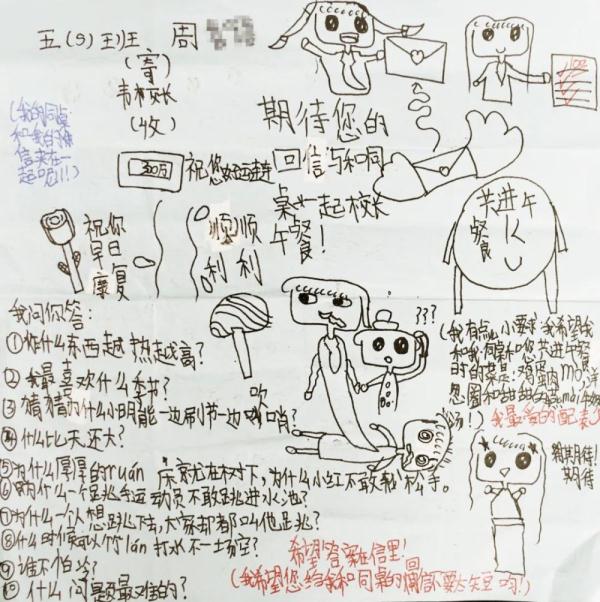 五(9)班 周
(寄)
韦校长
(收)
(我的同桌
和我的
信夹在一
起呢!!)
期待您的
回信与和同
桌一起校长
午餐!
祝您好运连连
祝你
早日
康复
顺顺
利利
共进午
餐
我问你答:
①什么东西越热越高?
②我最喜欢什么季节?
③猜猜为什么小明能一边刷牙一边吹口哨?
④什么比天还大?
⑤为什么厚厚的ruán床就在树下,为什么小红不敢松手。
⑥为什么一个跳水运动员不敢跳进水池?
⑦为什么一个人想跳下去,大家却都叫他跳?
⑧什么时候可以竹lán打水不一场空?
⑨谁不怕冷?
⑩什么问题最难的?
???
(我有点小要求我希望我
和我同桌和您共进午餐
时的菜是:鸡蛋肉mó,洋
葱圈和甜甜
汤!)
我最爱的配菜
期待!
期待
希望答案在信里!
(我希望您给我和同桌的回信不要太短哟!)